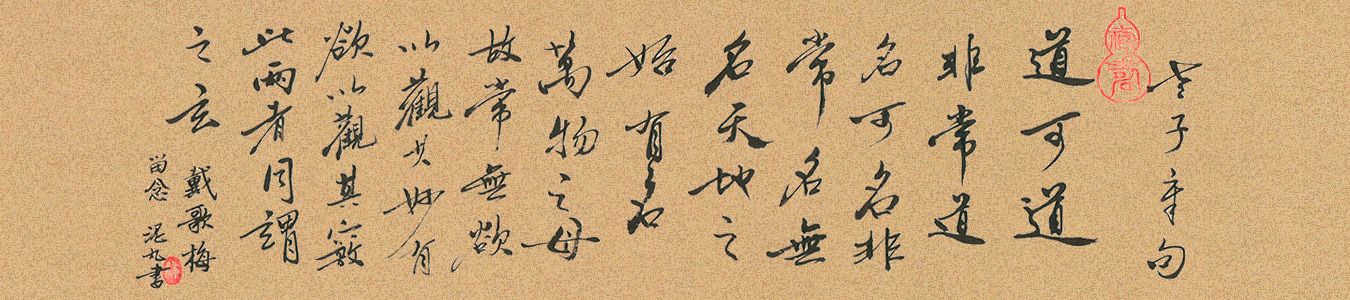 老子章句
道可道
非常道
名可名非
常名無
名天地之
始有名
萬物之母
故常無欲
以觀其妙有
欲以觀其竅
此兩者同謂
之玄
戴歌梅
留念 泥丸書